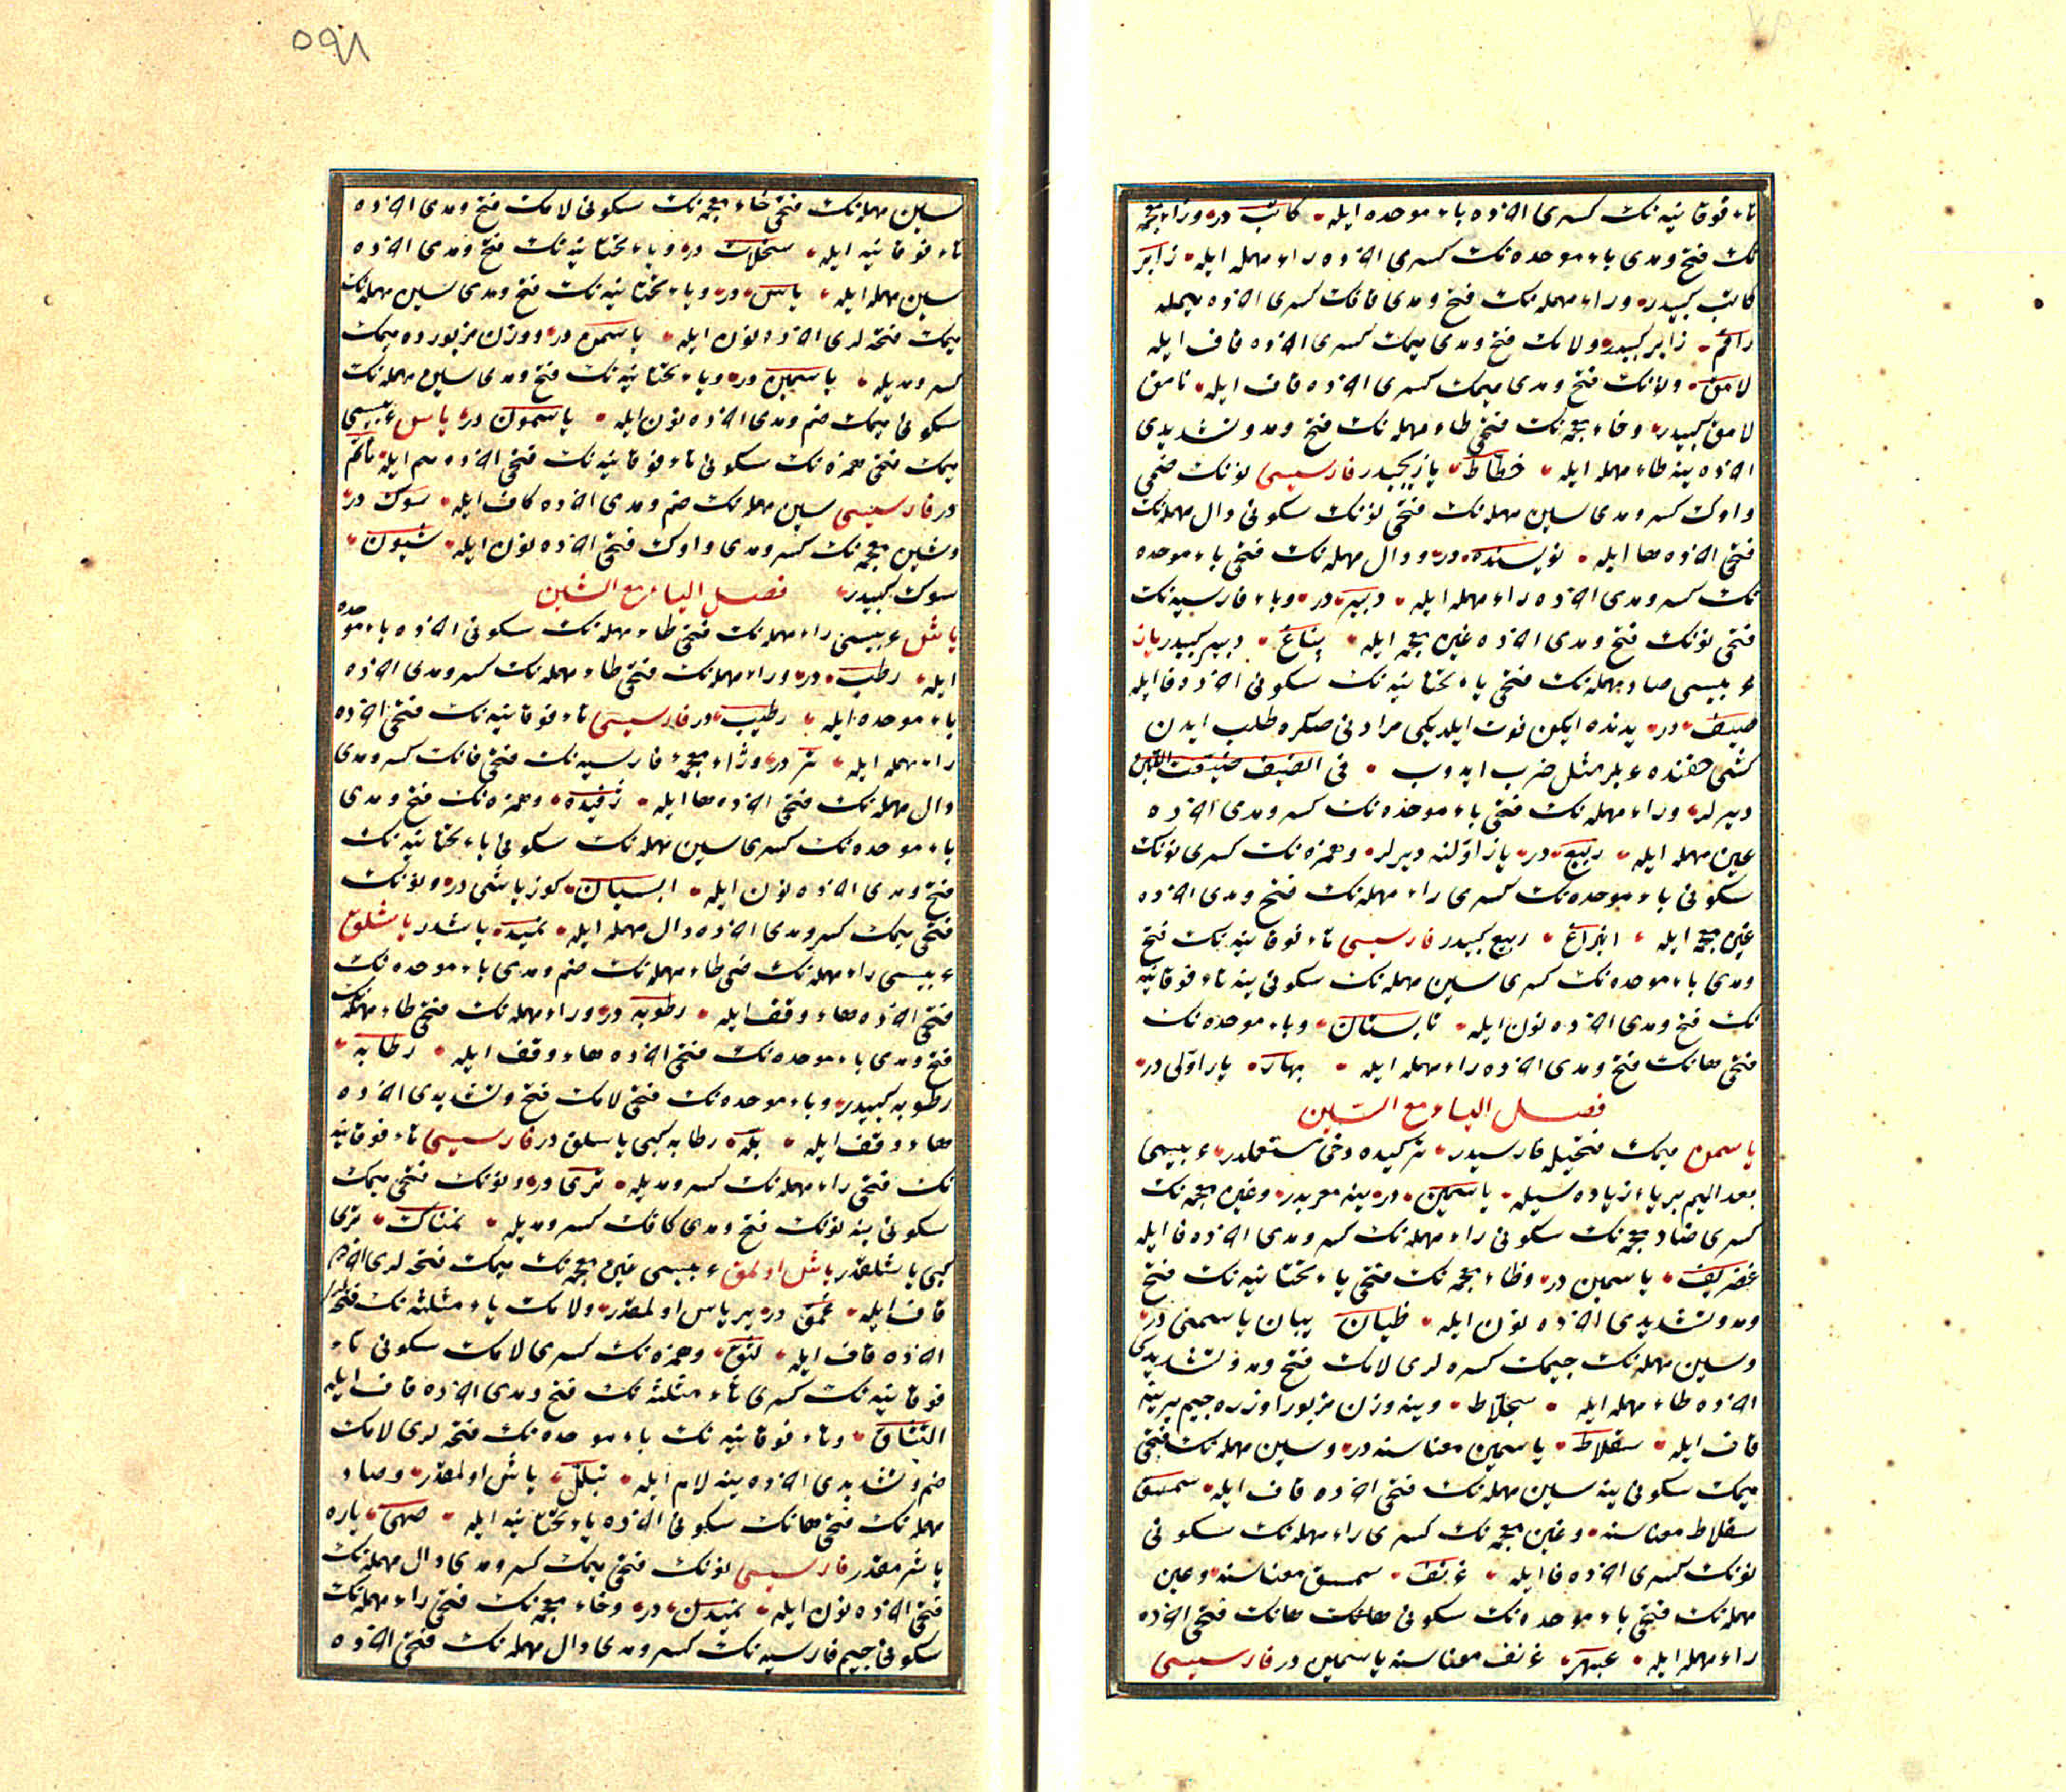 تاء فوقانیه نك كسری اخرده باء موحده ایله كاتب در وزاء معجمه
نك فتح ومدی باء موحده نك كسری اخرده راء مهمله ایله زابر
كاتب كبیدر وراء مهمله نك فتح ومدی قافك كسری اخرده میمله
راقم زابر كبیدر ولامك فتح ومدی میمك كسری اخرده قاف ایله
لامق ونونك فتح ومدی میمك كسری اخرده قاف ایله نامق
لامق كبیدر وخاء معجمه نك فتحی طاء مهمله نك فتح ومد وتشدیدی
اخرده ینه طاء مهمله ایله خطاط یازیجیدر فارسیسی نونك ضمی
واوك كسر ومدی سین مهمله نك فتحی نونك سكونی دال مهمله نك
فتحی اخرده ها ایله نویسنده در ودال مهمله نك فتحی باء موحده
نك كسر ومدی اخرده راء مهمله ایله دبیر در وباء فارسیه نك
فتحی نونك فتح ومدی اخرده غین معجمه ایله پناغ دبیر كبیدر یاز
عربیسی صاد مهمله نك فتحی یاء تحتانیه نك سكونی اخرده فا ایله
صیف در یدنده ایكن فوت ایلدیكی مرادنی صكره طلب ایدن
كشی حقنده عربلر مثل ضرب ایدوب فی الصیف ضیعت اللبن
دیرلر وراء مهمله نك فتحی باء موحده نك كسر ومدی اخرده
عین مهمله ایله ربیع در یاز اولنه دیرلر وهمزه نك كسری نونك
سكونی باء موحده نك كسری راء مهمله نك فتح ومدی اخرده
غین معجمه ایله انبراغ ربیع كبیدر فارسیسی تاء فوقانیه نك فتح
ومدی باء موحده نك كسری سین مهمله نك سكونی ینه تاء فوقانیه
نك فتح ومدی اخرده نون ایله تابستان وباء موحده نك
فتحی هانك فتح ومدی اخرده راء مهمله ایله بهار یاز اولی در
فصل الیاء مع السین
یاسمن میمك فتحیله فارسیدر تركیده دخی مستعملدر عربیسی
بعد المیم بر یاء زیاده سیله یاسمین در ینه معربدر وغین معجمه نك
كسری ضاد معجمه نك سكونی راء مهمله نك كسر ومدی اخرده فا ایله
غضریف یاسمین در وظاء معجمه نك فتحی یاء تحتانیه نك فتح
ومد وتشدیدی اخرده نون ایله ظیان یبان یاسمنی در
وسین مهمله نك جیمك كسره لری لامك فتح ومد وتشدیدی
اخرده طاء مهمله ایله سجلاط وینه وزن مزبور اوزره جیم یرینه
قاف ایله سقلاط یاسمین معناسنه در وسین مهمله نك فتحی
میمك سكونی ینه سین مهمله نك فتحی اخرده قاف ایله سمسق
سقلاط معناسنه وغین معجمه نك كسری راء مهمله نك سكونی
نونك كسری اخرده فا ایله غرنف سمسق معناسنه وعین
مهمله نك فتحی باء موحده نك سكونی هانك هانك فتحی اخرده
راء مهمله ایله عبهر غرنف معناسنه یاسمین در فارسیسی
٥٩٨
سین مهمله نك فتحی خاء معجمه نك سكونی لامك فتح ومدی اخرده
تاء فوقانیه ایله سخلات در ویاء تحتانیه نك فتح ومدی اخرده
سین مهمله ایله یاس در ویاء تحتانیه نك فتح ومدی سین مهمله نك
میمك فتحه لری اخرده نون ایله یاسمن در ووزن مزبورده میمك
كسر ومدیله یاسمین در ویاء تحتانیه نك فتح ومدی سین مهمله نك
سكونی میمك ضم ومدی اخرده نون ایله یاسمون در یاس عربیسی
میمك فتحی همزه نك سكونی تاء فوقانیه نك فتحی اخرده میم ایله مأتم
در فارسیسی سین مهمله نك ضم ومدی اخرده كاف ایله سوك در
وشین معجمه نك كسر ومدی واوك فتحی اخرده نون ایله شیون
سوك كبیدر فصل الیاء مع الشین
یاش عربیسی راء مهمله نك فتحی طاء مهمله نك سكونی اخرده باء موحده
ایله رطب در وراء مهمله نك فتحی طاء مهمله نك كسر ومدی اخرده
باء موحده ایله رطیب در فارسیسی تاء فوقانیه نك فتحی اخرده
راء مهمله ایله تر در وزاء معجمهٔ فارسیه نك فتحی فانك كسر ومدی
دال مهمله نك فتحی اخرده ها ایله ژفیده وهمزه نك فتح ومدی
باء موحده نك كسری سین مهمله نك سكونی یاء تحتانیه نك
فتح ومدی اخرده نون ایله ابسیان كوز یاشی در ونونك
فتحی میمك كسر ومدی اخرده دال مهمله ایله نمید یاشدر یاشلق
عربیسی راء مهمله نك ضمی طاء مهمله نك ضم ومدی باء موحده نك
فتحی اخرده هاء وقف ایله رطوبه در وراء مهمله نك فتحی طاء مهمله نك
فتح ومدی باء موحده نك فتحی اخرده هاء وقف ایله رطابه
رطوبه كبیدر وباء موحده نك فتحی لامك فتح وتشدیدی اخرده
هاء وقف ایله بله رطابه كبی یاسلق در فارسیسی تاء فوقانیه
نك فتحی راء مهمله نك كسر ومدیله تری در ونونك فتحی میمك
سكونی ینه نونك فتح ومدی كافك كسر ومدیله نمناكی تری
كبی یاشلقدر یاش اولمق عربیسی غین معجمه نك میمك فتحه لری اخرده
قاف ایله غمق در یر یاس اولمقدر ولامك ثاء مثلثه نك فتحه لری
اخرده قاف ایله لثق وهمزه نك كسری لامك سكونی تاء
فوقانیه نك كسری ثاء مثلثه نك فتح ومدی اخرده قاف ایله
التثاق وتاء فوقانیه نك باء موحده نك فتحه لری لامك
ضم وتشدیدی اخرده ینه لام ایله تبلل یاش اولمقدر وصاد
مهمله نك فتحی هانك سكونی اخرده یاء تحتانیه ایله صهی یاره
یاشرمقدر فارسیسی نونك فتحی میمك كسر ومدی دال مهمله نك
فتحی اخرده نون ایله نمیدن در وخاء معجمه نك فتحی راء مهمله نك
سكونی جیم فارسیه نك كسر ومدی دال مهمله نك فتحی اخرده